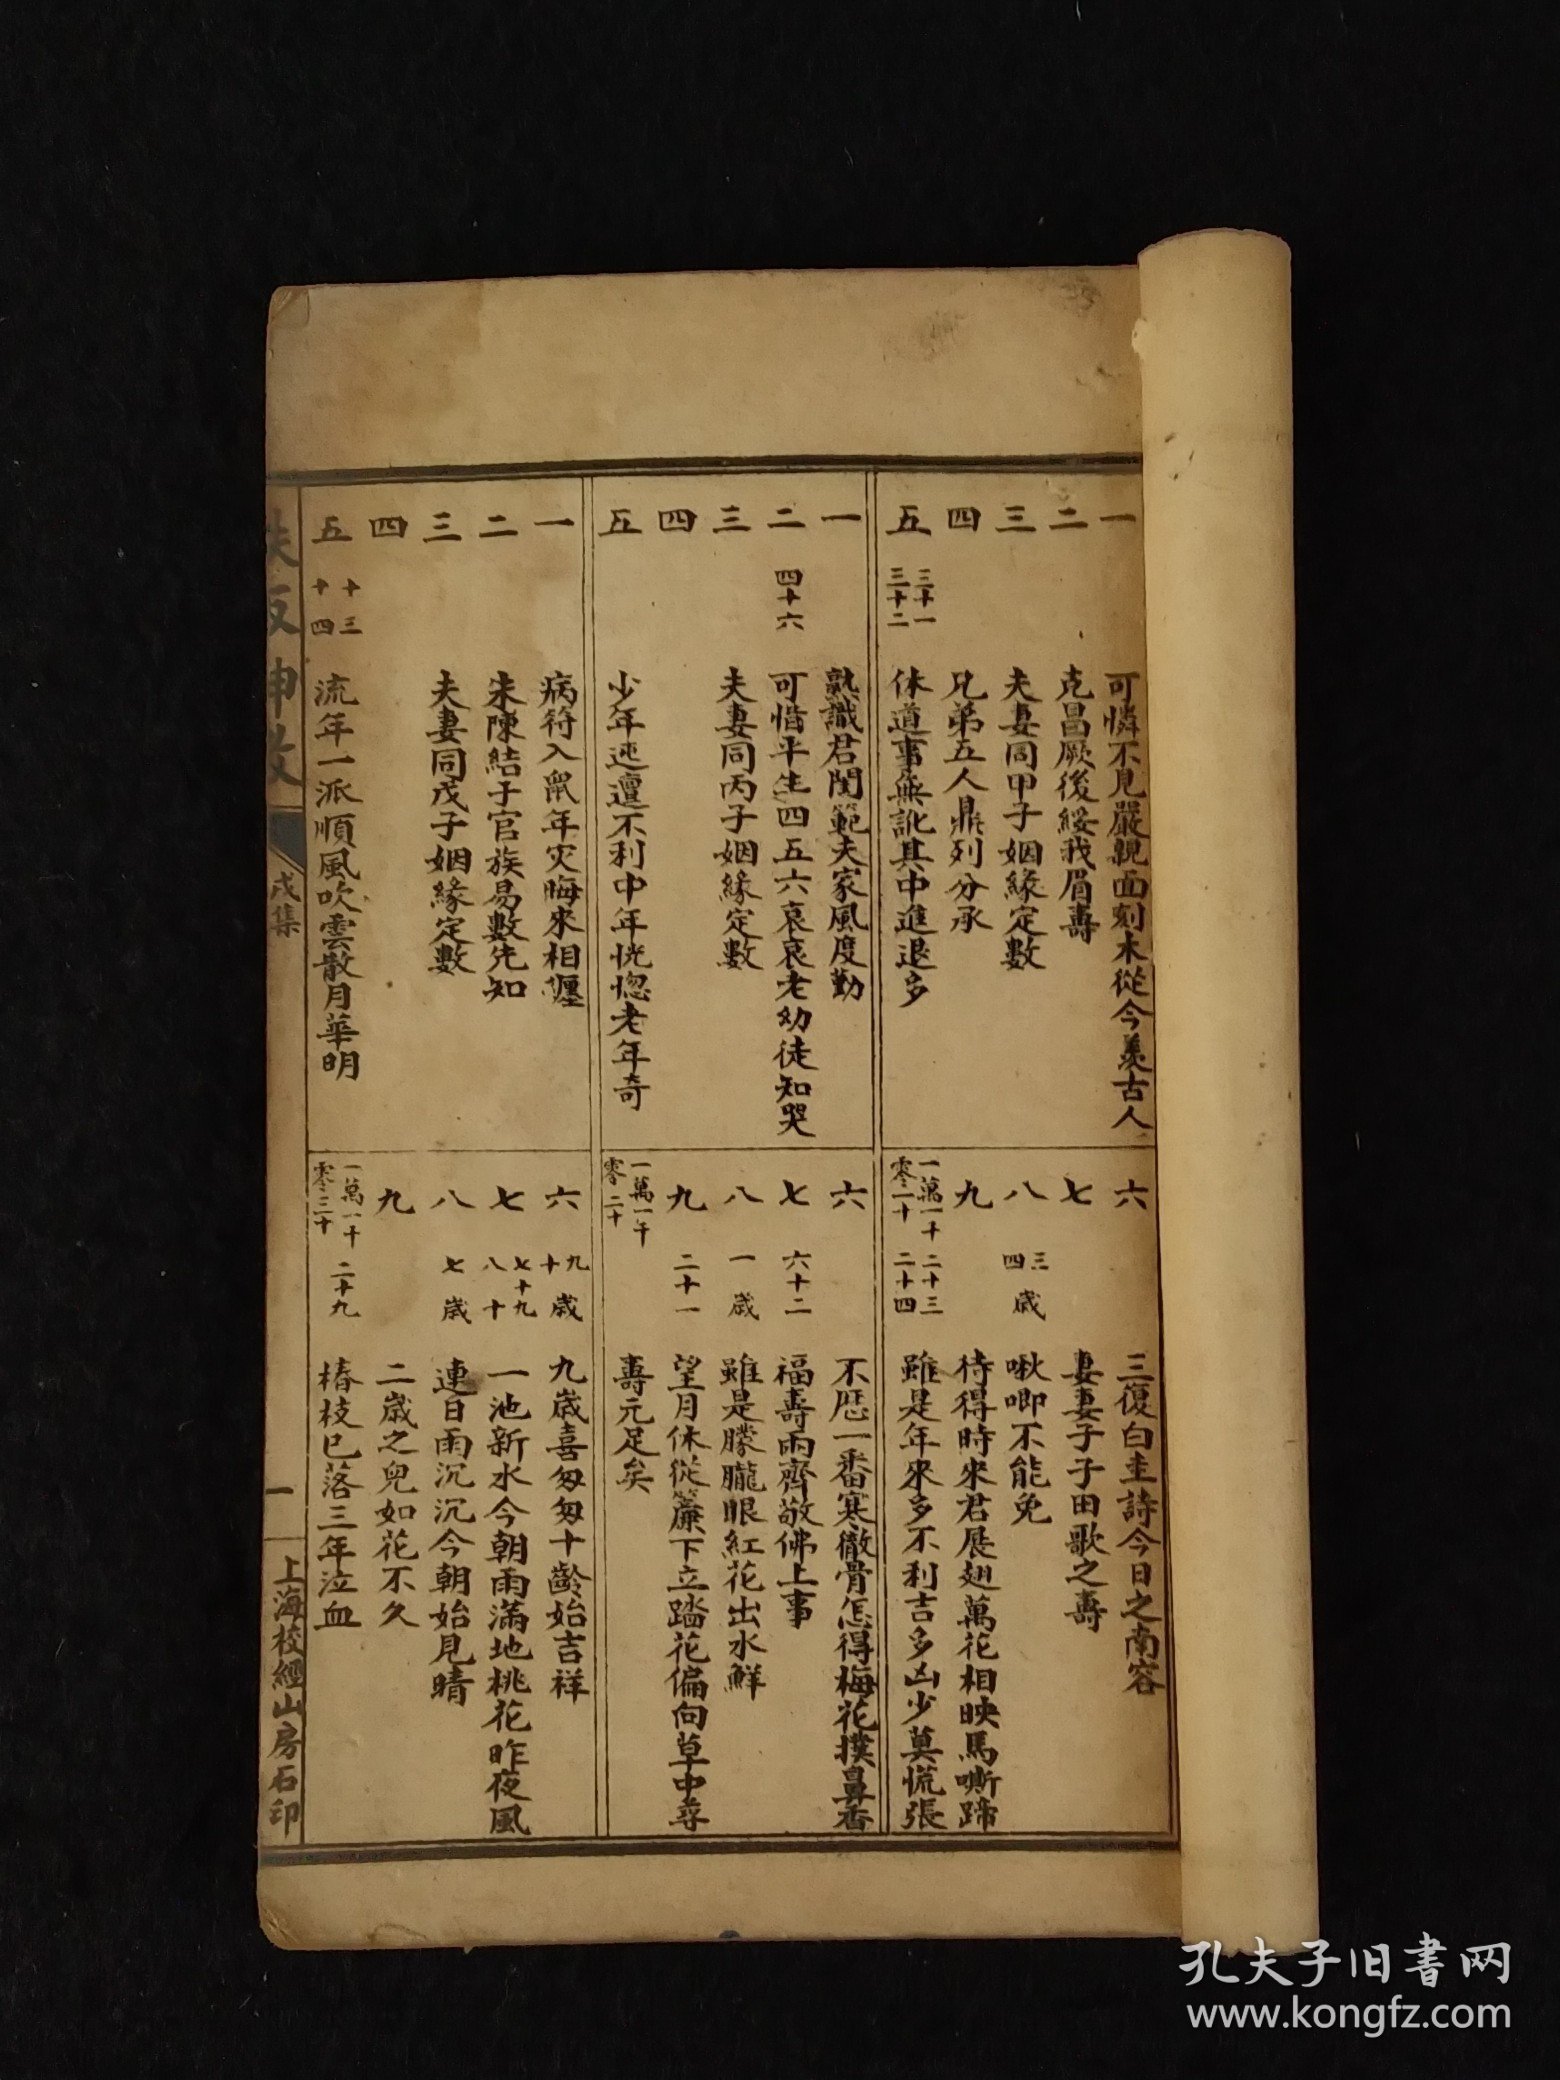 一 可憐不見嚴親面刻木從今羨古人
二 克昌厥後綏我眉壽
三 夫妻同甲子姻緣定數
四 兄弟五人鼎列分承
五 三十一 三十二 休道事無訛其中進退多
六 三復白圭詩今日之南容
七 妻妻子子田歌之壽
八 三四歲 啾唧不能免
九 待得時來君展翅萬花相映馬嘶蹄
一萬一千零一十 二十三 二十四 雖是年來多不利吉多凶少莫慌張
一 熟識君閨範夫家風度勤
二 四十六 可惜平生四五六哀哀老幼徒知哭
三 夫妻同丙子姻緣定數
四
五 少年迍邅不利中年恍惚老年奇
六 不歷一番寒徹骨怎得梅花撲鼻香
七 六十二 福壽兩齊敬佛上事
八 一歲 雖是朦朧眼紅花出水鮮
九 二十一 望月休從簾下立踏花偏向草中尋
一萬一千零二十 壽元足矣
一 病符入鼠年灾晦來相纏
二 朱陳結子官族易數先知
三 夫妻同戊子姻緣定數
四
五 十三 十四 流年一派順風吹雲散月華明
六 九十歲 九歲喜匆匆十齡始吉祥
七 七十九 八十 一池新水今朝雨滿地桃花昨夜風
八 七歲 連日雨沉沉今朝始見晴
九 二歲之兒如花不久
一萬一千零三十 二十九 椿枝已落三年泣血
神數
戌集
一
上海校經山房石印
孔夫子旧書网
www.kongfz.com